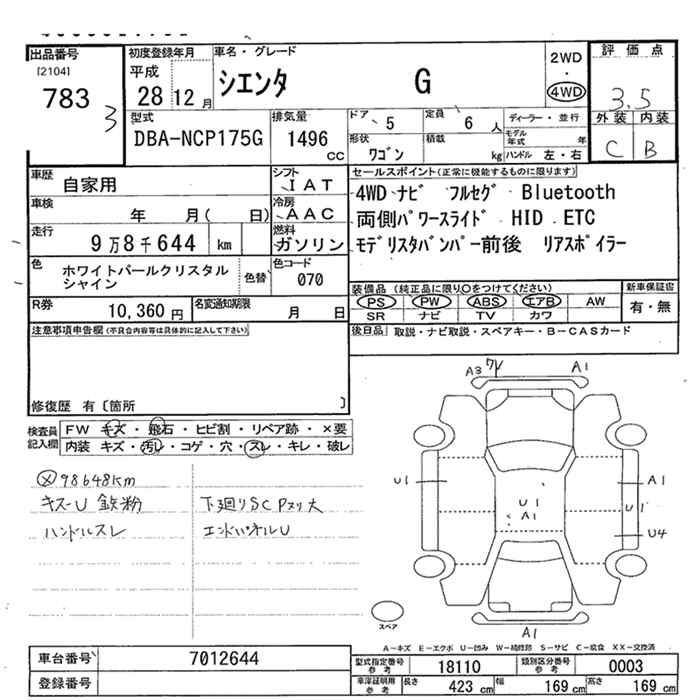 出品番号 初度登録年月 車名・グレード 2WD 評価点
[2104] 平成 ・
783 3 28年 12月 シエンタ G 4WD 3.5
型式 排気量 ドア 5 定員 6人 ディーラー・並行 外装 内装
DBA-NCP175G 1496 cc 形状 ワゴン 積載 kg モデル年式 年 ハンドル 左・右 C B
車歴 自家用 シフト IAT セールスポイント(正常に機能するものに限ります)
車検 年 月( 日) 冷房 AAC 4WD ナビ フルセグ Bluetooth
走行 9万8千644 km 燃料 ガソリン 両側パワースライド HID ETC
モデリスタバンパー前後 リアスポイラー
色 ホワイトパールクリスタルシャイン 色替 色コード 070
装備品(純正品に限り〇をつけてください) 新車保証書
R券 10,360円 名変通知期限 月 日 PS PW ABS エアB AW 有・無
SR ナビ TV カワ
注意事項申告欄(不具合内容等は具体的に記入して下さい) 後日品 取説・ナビ取説・スペアキー・B-CASカード
修復歴 有〔箇所 〕
検査員記入欄 FW キズ・飛石・ヒビ割・リペア跡・×要
内装 キズ・汚レ・コゲ・穴・スレ・キレ・破レ
A3 ワレ A1
U1 U1 A1 A1 U1 U4
A1
スペア
98648km
キズーU 鉄粉 下廻りSC Pヌリ大
ハンドルスレ エンドパネルU
A-キズ E-エクボ U-凹み W-補修跡 S-サビ C-腐食 XX-交換済
車台番号 7012644 型式指定番号 参考 18110 類別区分番号 参考 0003
登録番号 車庫証明用 参考 長さ 423 cm 幅 169 cm 高さ 169 cm